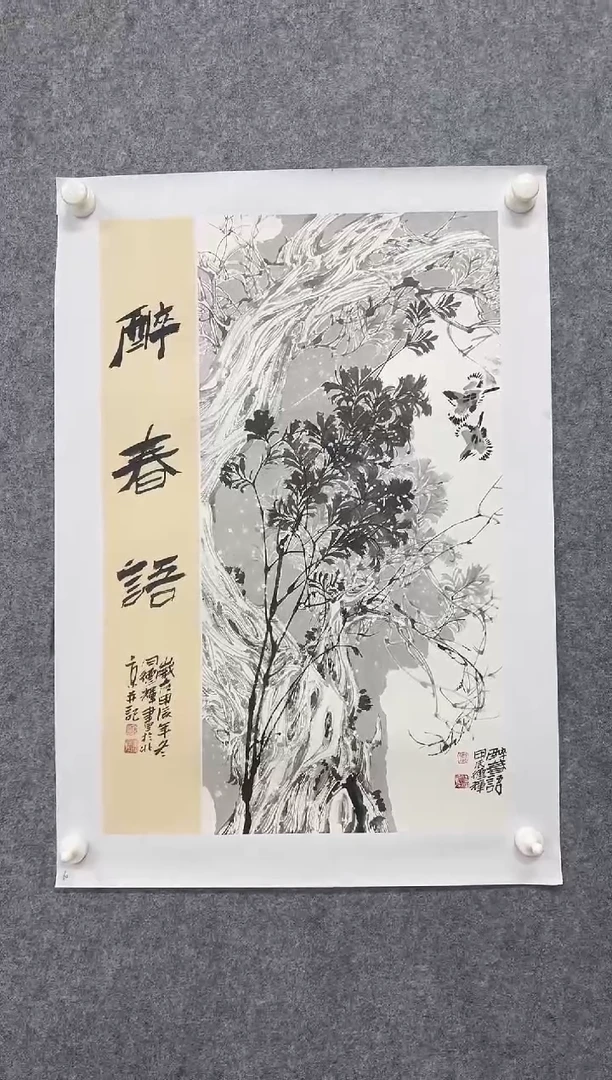 醉春語
歲次甲辰年冬
德輝書於北
京并記
醉春語
甲辰德輝